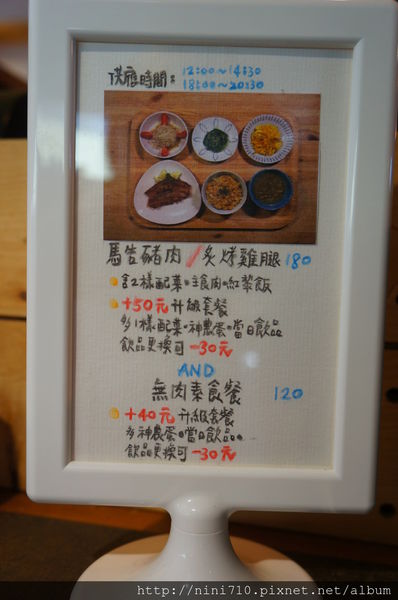 供應時間: 12:00~14:30
18:00~20:30
馬告豬肉/炙烤雞腿 180
含2樣配菜+主食肉+紅藜飯
+50元升級套餐
多1樣配菜+神農蛋+當日飲品
飲品更換可-30元
AND
無肉素食餐 120
+40元升級套餐
多神農蛋+當日飲品。
飲品更換可-30元
http://nini710.pixnet.net/album